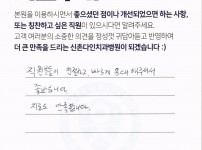 본원을 이용하시면서 좋으셨던 점이나 개선되었으면 하는 사항,
또는 칭찬하고 싶은 직원이 있으시다면 알려주세요.
고객 여러분의 소중한 의견을 정성껏 귀담아듣고 반영하여
더 큰 만족을 드리는 신촌다인치과병원이 되겠습니다 :)
직원분들이 친절하고 빠르게 응대해주셔서
좋습니다.
진료도 만족합니다.